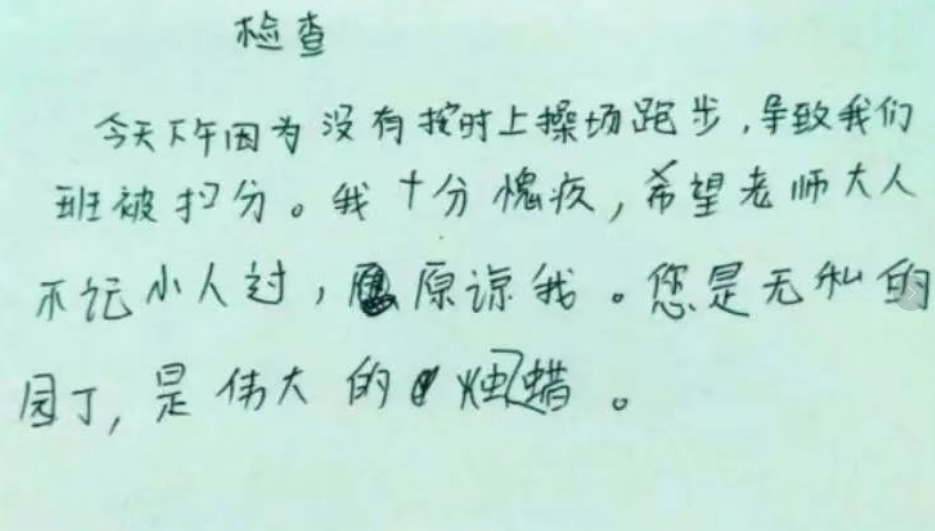 检查
今天下午因为没有按时上操场跑步,导致我们
班被扣分。我十分愧疚,希望老师大人
不记小人过,原谅我。您是无私的
园丁,是伟大的蜡。